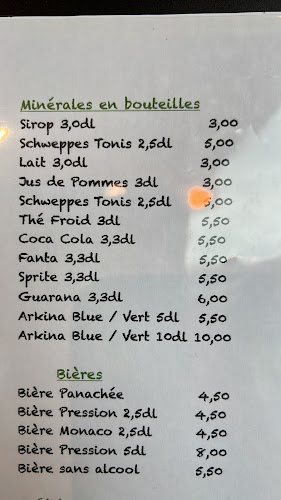 Minérales en bouteilles
Sirop 3,0dl 3,00
Schweppes Tonis 2,5dl 5,00
Lait 3,0dl 3,00
Jus de Pommes 3dl 3,00
Schweppes Tonis 2,5dl 5,00
Thé Froid 3dl 5,50
Coca Cola 3,3dl 5,50
Fanta 3,3dl 5,50
Sprite 3,3dl 5,50
Guarana 3,3dl 6,00
Arkina Blue / Vert 5dl 5,50
Arkina Blue / Vert 10dl 10,00
Bières
Bière Panachée 4,50
Bière Pression 2,5dl 4,50
Bière Monaco 2,5dl 4,50
Bière Pression 5dl 8,00
Bière sans alcool 5,50